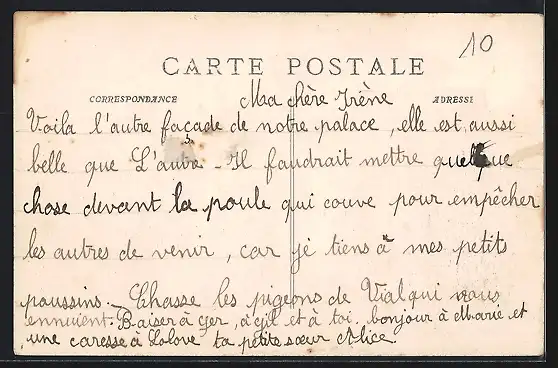 10
CARTE POSTALE
CORRESPONDANCE
ADRESSE
Ma chère Irène
Voila l'autre façade de notre palace, elle est aussi
belle que L'autre - Il faudrait mettre quelque
chose devant la poule qui couve pour empêcher
les autres de venir, car je tiens à mes petits
poussins. Chasse les pigeons de Vial qui nous
ennuient. Baiser à ger, à gil et à toi, bonjour à Marie et
une caresse à Lolove ta petite sœur Alice.